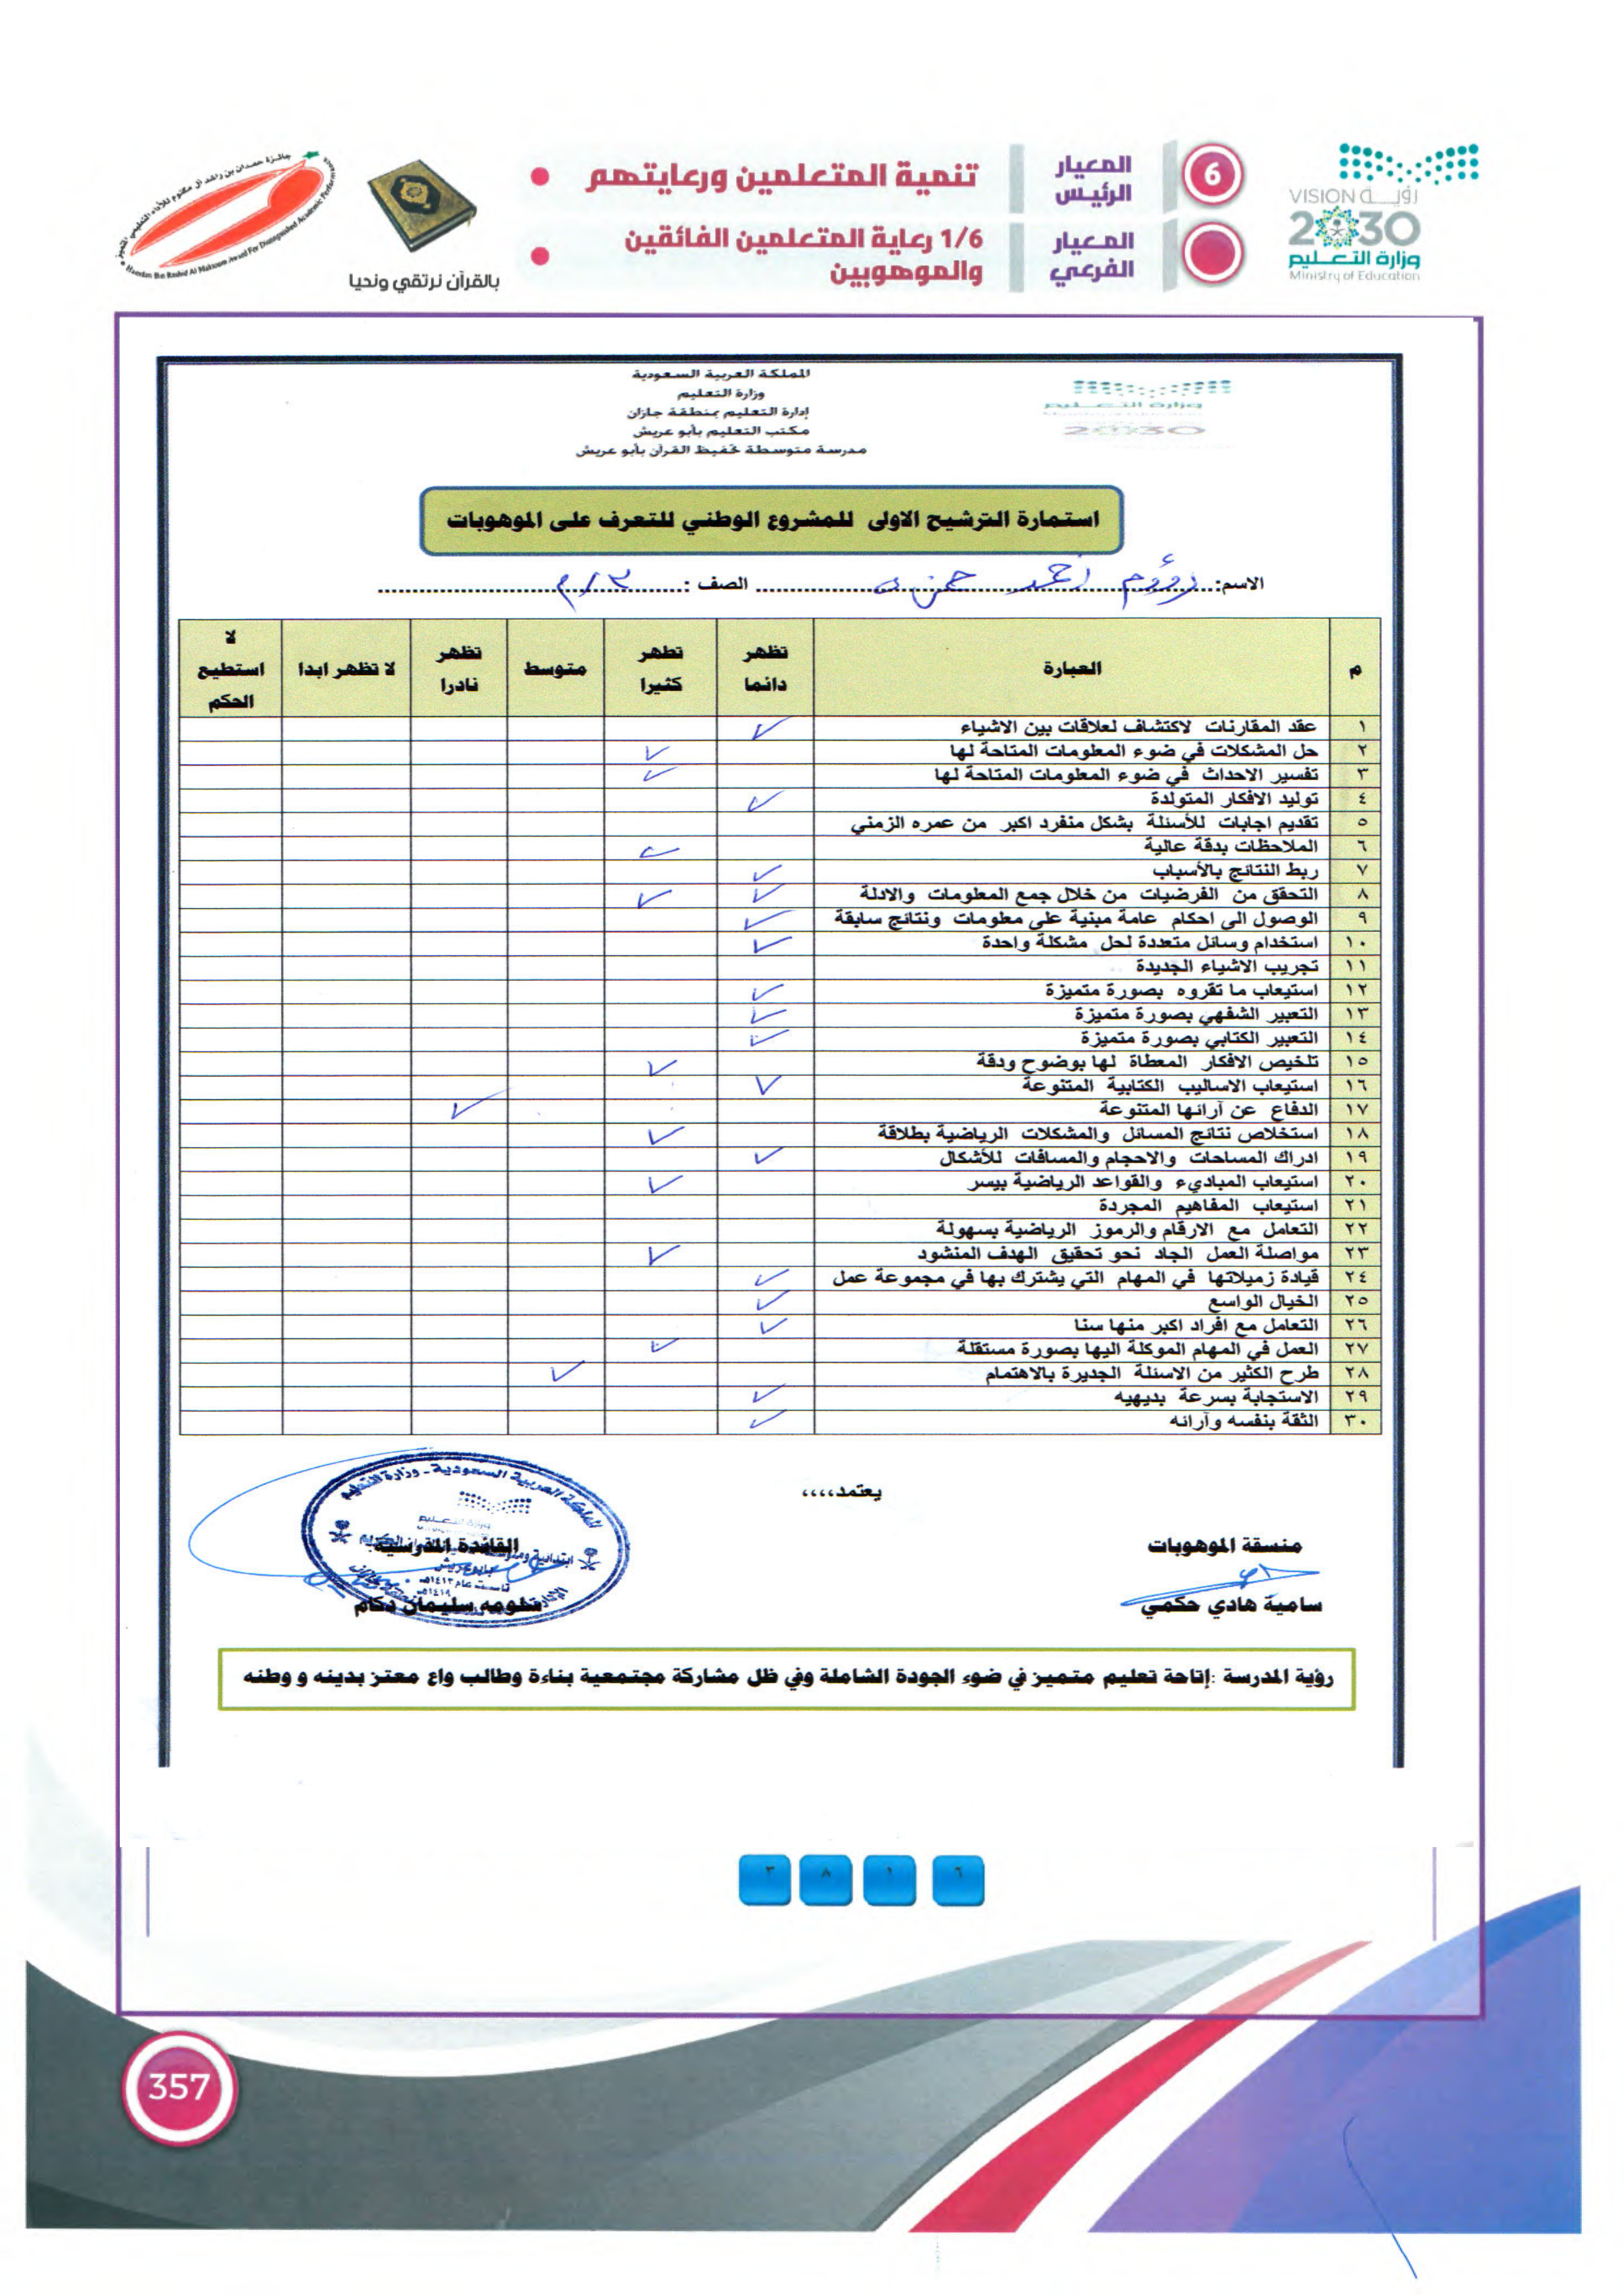 جائزة حمدان بن راشد آل مكتوم للأداء التعليمي المتميز
Hamdan Bin Rashid Al Maktoum Award For Distinguished Academic Performance
بالقرآن نرتقي ونحيا
6
المعيار الرئيس
تنمية المتعلمين ورعايتهم
المعيار الفرعي
1/6 رعاية المتعلمين الفائقين
والموهوبين
VISION رؤيــة
2030
وزارة التعليم
Ministry of Education
المملكة العربية السعودية
وزارة التعليم
إدارة التعليم بمنطقة جازان
مكتب التعليم بأبو عريش
مدرسة متوسطة تحفيظ القرآن بأبو عريش
وزارة التعليم
2030
استمارة الترشيح الاولى للمشروع الوطني للتعرف على الموهوبات
الاسم: أحمد الصف : ٣/م
م العبارة تظهر دائما تظهر كثيرا متوسط تظهر نادرا لا تظهر ابدا لا استطيع الحكم
١ عقد المقارنات لاكتشاف لعلاقات بين الاشياء ✓
٢ حل المشكلات في ضوء المعلومات المتاحة لها ✓
٣ تفسير الاحداث في ضوء المعلومات المتاحة لها ✓
٤ توليد الافكار المتولدة ✓
٥ تقديم اجابات للأسئلة بشكل منفرد اكبر من عمره الزمني
٦ الملاحظات بدقة عالية ✓
٧ ربط النتائج بالأسباب ✓
٨ التحقق من الفرضيات من خلال جمع المعلومات والادلة ✓ ✓
٩ الوصول الى احكام عامة مبنية على معلومات ونتائج سابقة ✓
١٠ استخدام وسائل متعددة لحل مشكلة واحدة ✓
١١ تجريب الاشياء الجديدة
١٢ استيعاب ما تقروه بصورة متميزة ✓
١٣ التعبير الشفهي بصورة متميزة ✓
١٤ التعبير الكتابي بصورة متميزة ✓
١٥ تلخيص الافكار المعطاة لها بوضوح ودقة ✓
١٦ استيعاب الاساليب الكتابية المتنوعة ✓
١٧ الدفاع عن آرائها المتنوعة ✓
١٨ استخلاص نتائج المسائل والمشكلات الرياضية بطلاقة ✓
١٩ ادراك المساحات والاحجام والمسافات للأشكال ✓
٢٠ استيعاب المباديء والقواعد الرياضية بيسر ✓
٢١ استيعاب المفاهيم المجردة
٢٢ التعامل مع الارقام والرموز الرياضية بسهولة
٢٣ مواصلة العمل الجاد نحو تحقيق الهدف المنشود ✓
٢٤ قيادة زميلاتها في المهام التي يشترك بها في مجموعة عمل ✓
٢٥ الخيال الواسع ✓
٢٦ التعامل مع افراد اكبر منها سنا ✓
٢٧ العمل في المهام الموكلة اليها بصورة مستقلة ✓
٢٨ طرح الكثير من الاسئلة الجديرة بالاهتمام ✓
٢٩ الاستجابة بسرعة بديهيه ✓
٣٠ الثقة بنفسه وآرائه ✓
يعتمد،،،،
منسقة الموهوبات
سامية هادي حكمي
القائدة المدرسية
سليمان دكام
المملكة العربية السعودية - وزارة التعليم
رؤية المدرسة :إتاحة تعليم متميز في ضوء الجودة الشاملة وفي ظل مشاركة مجتمعية بناءة وطالب واع معتز بدينه و وطنه
٦ ١ ٨ ٣
357